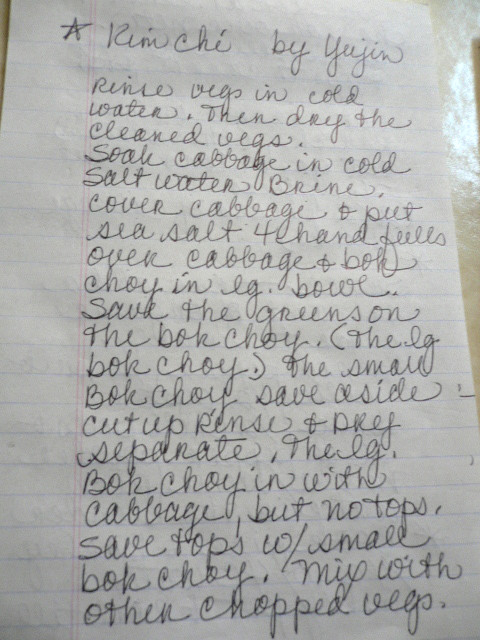 ☆ Kim chi by Yujin
Rinse vegs in cold
water. Then dry the
cleaned vegs.
Soak cabbage in cold
salt water Brine.
cover cabbage & put
sea salt 4 hand fulls
over cabbage & bok
choy in lg. bowl.
Save the greens on
the bok choy. (The lg
bok choy.) The small
Bok choy save aside -
cut up Rinse & Drey
separate. The lg.
Bok choy in with
cabbage, but no tops.
Save tops w/ small
bok choy. Mix with
other chopped vegs.